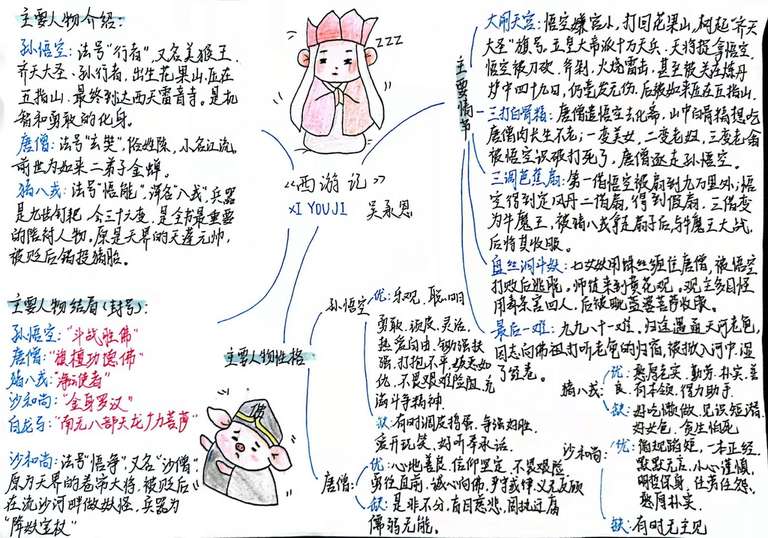 主要人物介绍:
孙悟空: 法号"行者", 又名美猴王、
齐天大圣、孙行者, 出生花果山, 压在
五指山, 最终到达西天雷音寺。是机
智和勇敢的化身。
唐僧: 法号"玄奘", 俗姓陈, 小名江流,
前世为如来二弟子金蝉。
猪八戒: 法号"悟能", 浑名"八戒", 兵器
是九齿钉耙, 会三十六变, 是全书最重要
的陪衬人物, 原是天界的天蓬元帅,
被贬后错投猪胎。
主要人物结局(封号):
孙悟空: "斗战胜佛"
唐僧: "旃檀功德佛"
猪八戒: "净坛使者"
沙和尚: "金身罗汉"
白龙马: "南无八部天龙广力菩萨"
沙和尚: 法号"悟净", 又名"沙僧",
原为天界的卷帘大将, 被贬后
在流沙河畔做妖怪, 兵器为
"降妖宝杖"
zzz
《西游记》
XI YOUJI 吴承恩
主要情节
大闹天宫: 悟空嫌官小, 打回花果山, 树起"齐天
大圣"旗号, 玉皇大帝派十万天兵、天将捉拿悟空,
悟空被刀砍、斧剁、火烧雷击, 甚至被关在炼丹
炉中四十九日, 仍毫发无伤。后被如来压在五指山。
三打白骨精: 唐僧遣悟空去化斋, 山中白骨精想吃
唐僧肉长生不老; 一变美女, 二变老妪, 三变老翁
被悟空识破打死了, 唐僧逐走孙悟空。
三调芭蕉扇: 第一借悟空被扇到九万里外; 悟
空得到定风丹二借扇, 得到假扇, 三借变
为牛魔王, 被猪八戒拿走扇子后与牛魔王大战,
后将其收服。
盘丝洞斗妖: 七女妖用蛛丝缠住唐僧, 被悟空
打败后逃脱。师徒来到黄花观。观主多目怪
用毒茶害四人, 后被毗蓝婆菩萨收服。
最后一难: 九九八十一难, 归途遇通天河老鼋,
因忘向佛祖打听老鼋的归宿, 被掀入河中, 湿
了经卷。
主要人物性格
孙悟空
优: 乐观、聪明
勇敢、顽皮、灵活、
热爱自由、锄强扶
强, 打抱不平, 嫉恶如
仇, 不畏艰难险阻, 充
满斗争精神.
缺: 有时调皮捣蛋、争强好胜
爱开玩笑、好听奉承话。
唐僧:
优: 心地善良, 信仰坚定, 不畏艰险
勇往直前, 诚心向佛, 严守戒律, 义无反顾
缺: 是非不分, 盲目慈悲, 固执迂腐
懦弱无能。
猪八戒:
优: 憨厚老实, 勤劳、朴实、善
良, 有本领, 得力助手
缺: 好吃懒做, 见识短浅,
好女色, 贪生怕死
沙和尚:
优: 循规蹈矩, 一本正经.
默默无言, 小心谨慎,
明哲保身, 任劳任怨,
憨厚朴实.
缺: 有时无主见
佛